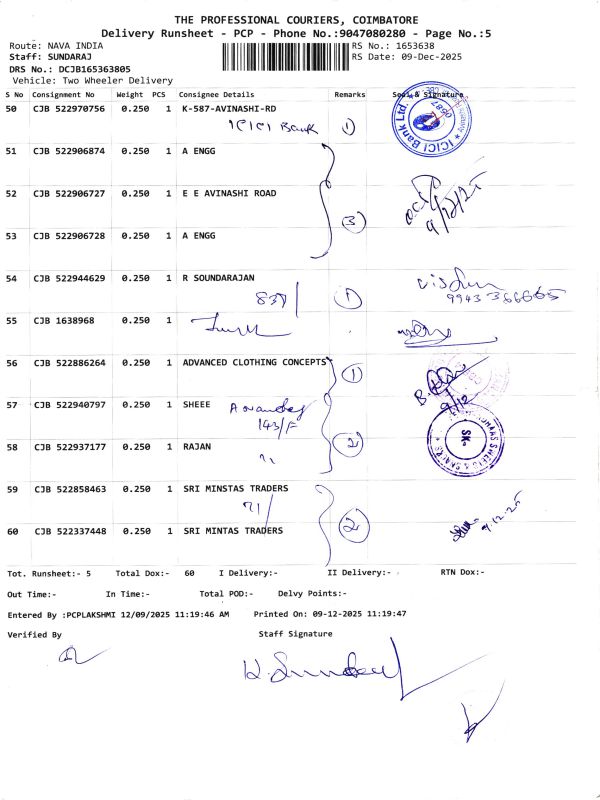 THE PROFESSIONAL COURIERS, COIMBATORE
Delivery Runsheet - PCP - Phone No.:9047080280 - Page No.:5
Route: NAVA INDIA
RS No.: 1653638
Staff: SUNDARAJ
RS Date: 09-Dec-2025
DRS No.: DCJB165363805
Vehicle: Two Wheeler Delivery
S No Consignment No Weight PCS Consignee Details Remarks Seal & Signature
50 CJB 522970756 0.250 1 K-587-AVINASHI-RD
ICICI Bank 1
ICICI Bank Ltd.
51 CJB 522906874 0.250 1 A ENGG
52 CJB 522906727 0.250 1 E E AVINASHI ROAD
3
9/12/25
53 CJB 522906728 0.250 1 A ENGG
54 CJB 522944629 0.250 1 R SOUNDARAJAN
837 1
9943366665
55 CJB 1638968 0.250 1
56 CJB 522886264 0.250 1 ADVANCED CLOTHING CONCEPTS
1
9/12
57 CJB 522940797 0.250 1 SHEEE
143/F
58 CJB 522937177 0.250 1 RAJAN
2
59 CJB 522858463 0.250 1 SRI MINSTAS TRADERS
71/
2
9.12.25
60 CJB 522337448 0.250 1 SRI MINTAS TRADERS
Tot. Runsheet:- 5 Total Dox:- 60 I Delivery:- II Delivery:- RTN Dox:-
Out Time:- In Time:- Total POD:- Delvy Points:-
Entered By :PCPLAKSHMI 12/09/2025 11:19:46 AM Printed On: 09-12-2025 11:19:47
Verified By Staff Signature